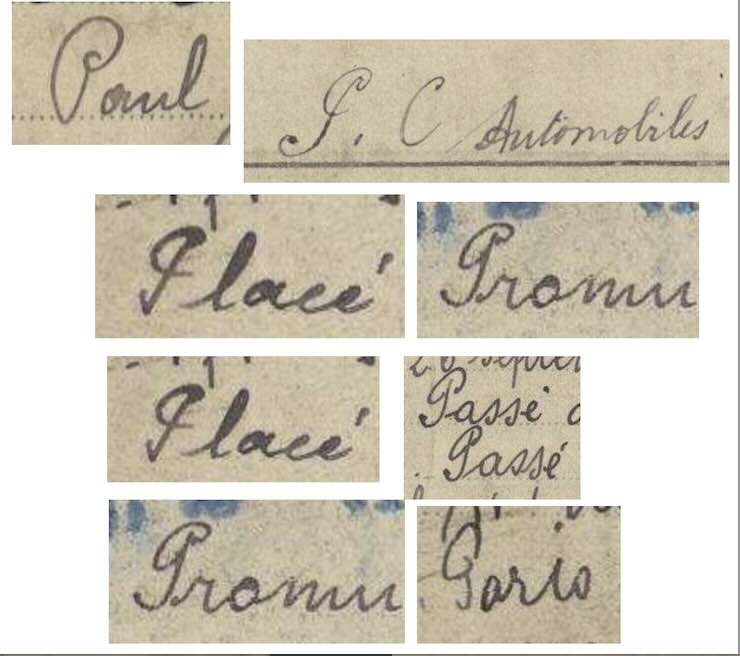 Paul
P. C Automobiles
Placé
Promu
Placé
Passé
Passé
Promu
Paris